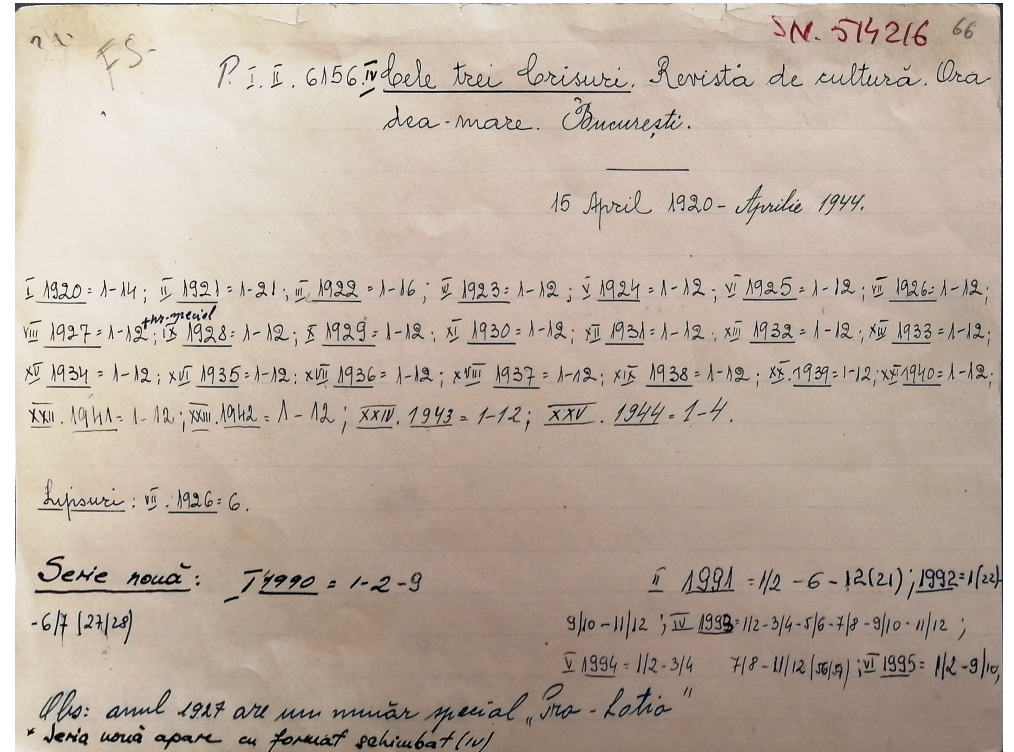 SN. 514216 66
FS-
P. I. II. 6156. IV Cele trei Crisuri. Revistă de cultură. Ora
dea-mare. București.
15 April 1920 - Aprilie 1944.
I 1920 = 1-14; II 1921 = 1-21; III 1922 = 1-16; IV 1923 = 1-12; V 1924 = 1-12; VI 1925 = 1-12; VII 1926 = 1-12;
VIII 1927 = 1-12 +nr. special; IX 1928 = 1-12; X 1929 = 1-12; XI 1930 = 1-12; XII 1931 = 1-12. XIII 1932 = 1-12; XIV 1933 = 1-12;
XV 1934 = 1-12; XVI 1935 = 1-12; XVII 1936 = 1-12; XVIII 1937 = 1-12; XIX 1938 = 1-12; XX. 1939 = 1-12; XXI 1940 = 1-12;
XXII. 1941 = 1-12; XXIII. 1942 = 1-12; XXIV. 1943 = 1-12; XXV. 1944 = 1-4.
Lipsuri: VII. 1926 = 6.
Serie nouă: I 1990 = 1-2-9 II 1991 = 1/2 - 6 - 12(21); 1992 = 1(22)-
-6/7 (27/28) 9/10 - 11/12; IV 1993 = 1/2-3/4-5/6-7/8-9/10-11/12;
V 1994 = 1/2-3/4 7/8-11/12 (56/57); VI 1995 = 1/2-9/10,
Obs: anul 1927 are un număr special "Pro-Latio"
* Seria nouă apare cu format schimbat (IV)